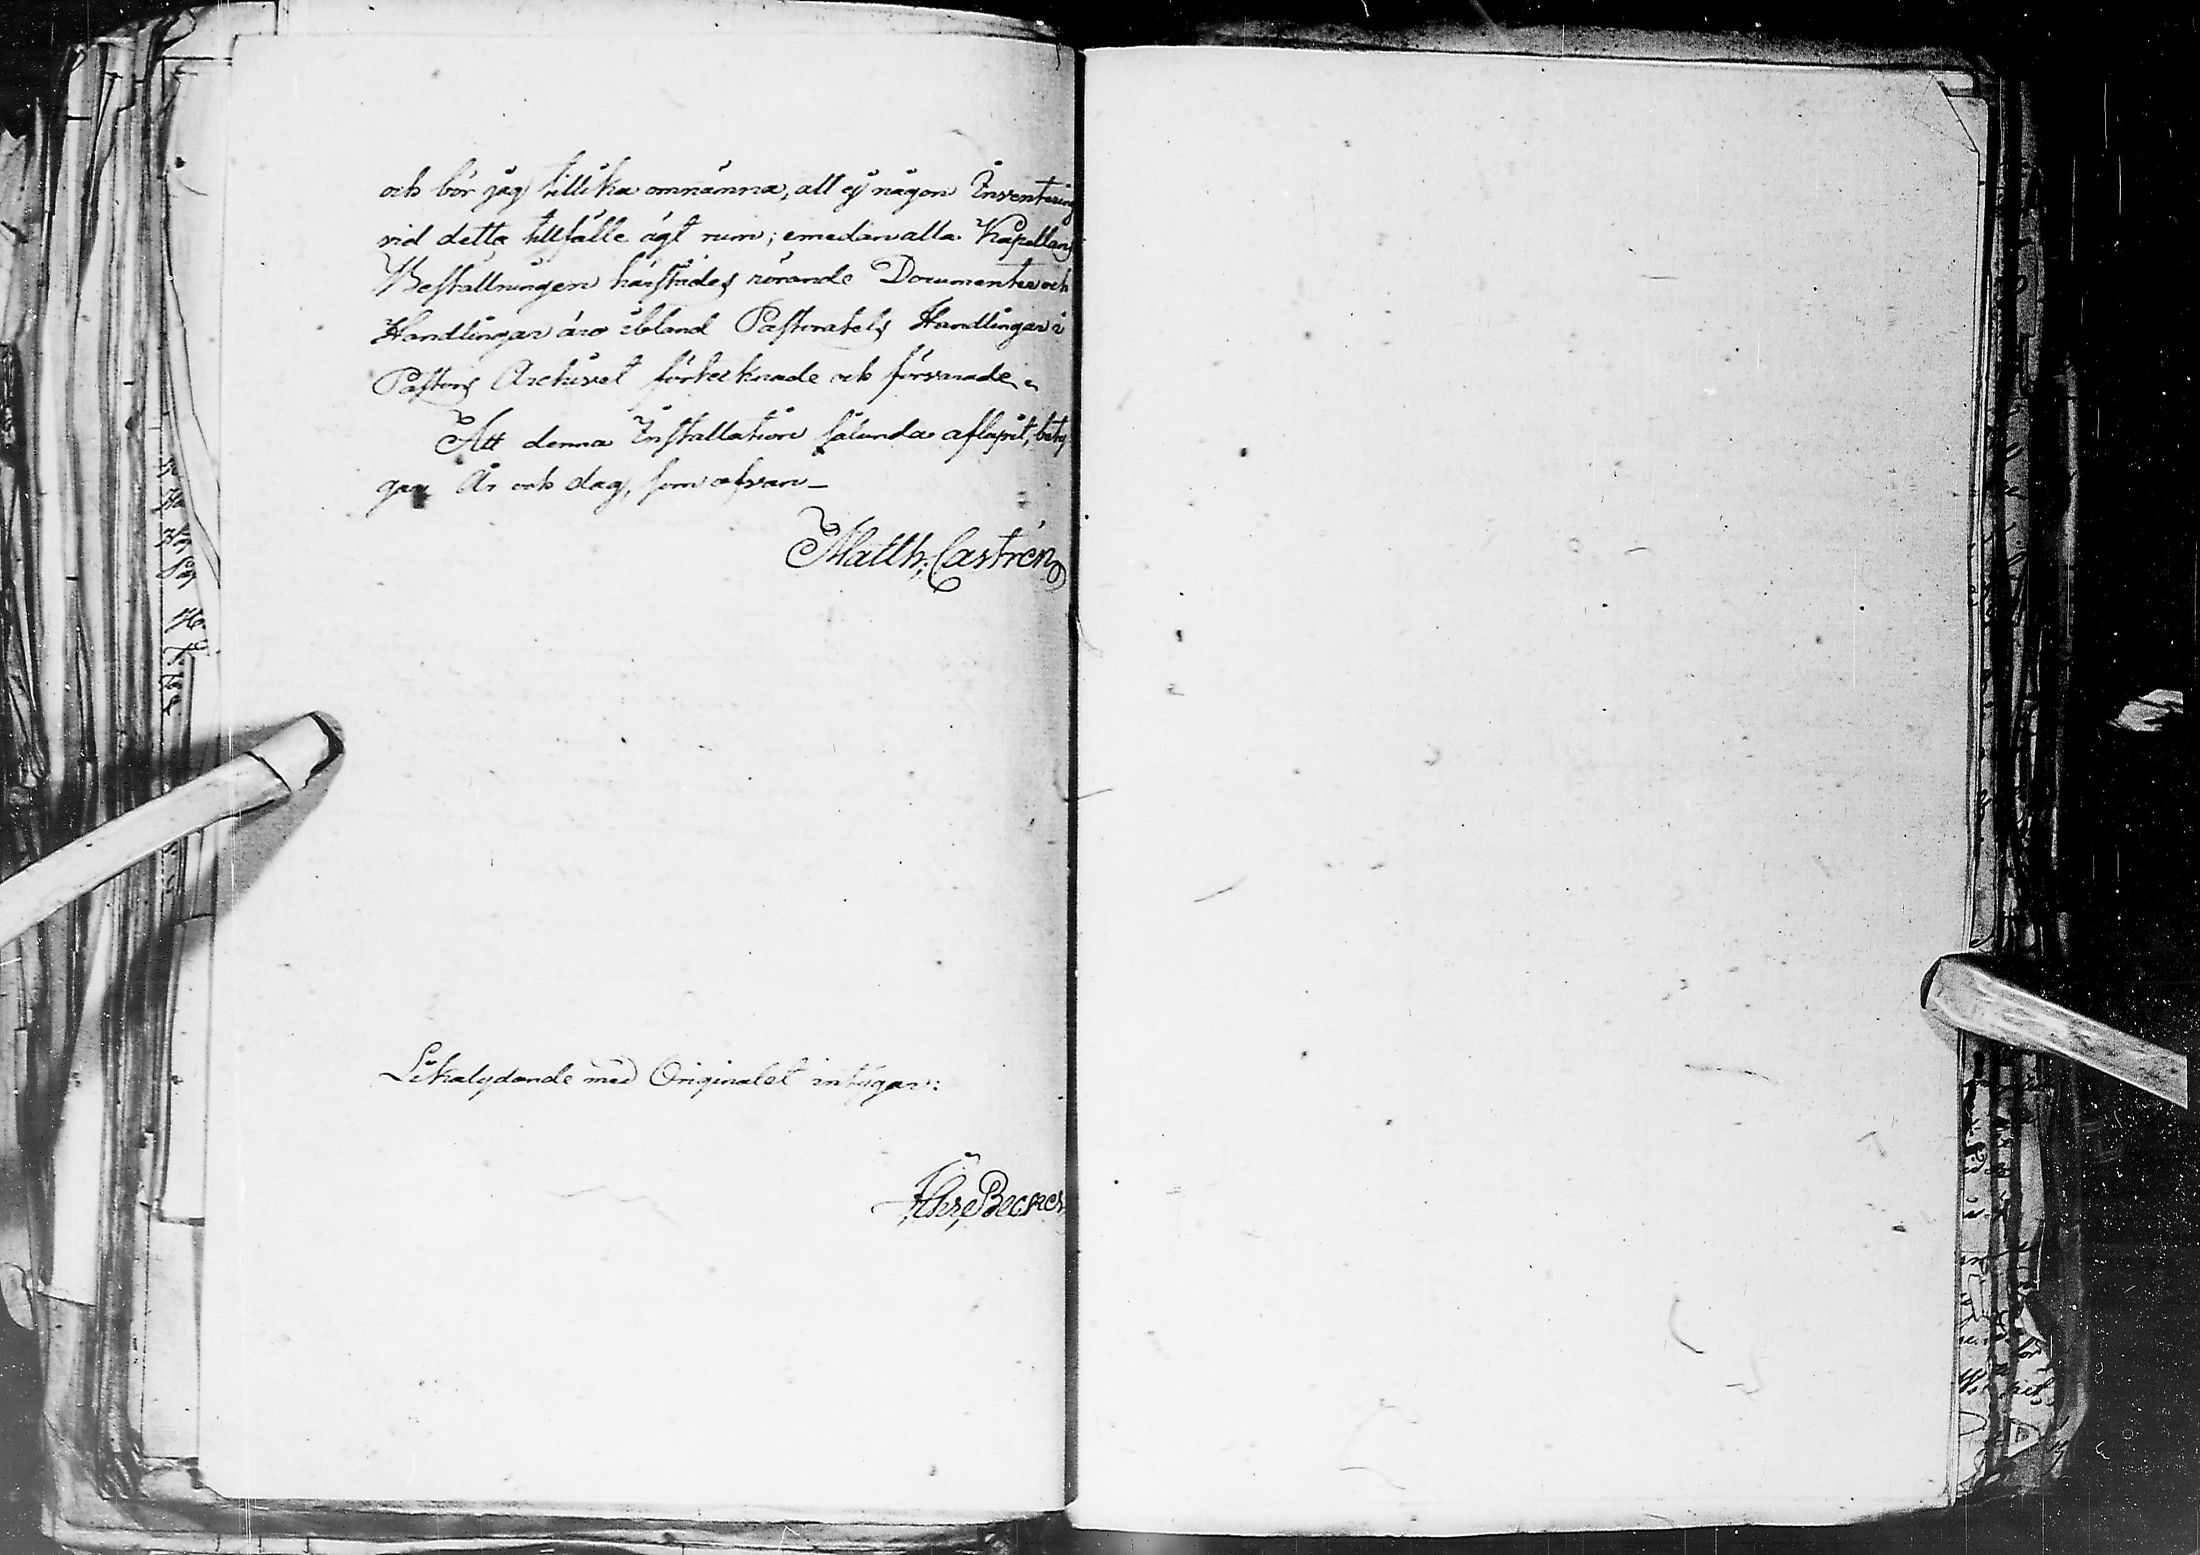 och bör jag tillika omnämna, att ej någon Inventering
vid detta tillfälle ägt rum; emedan alla Kapellans
Beställningen härstädes rörande Documenter och
Handlingar äro ibland Pastoratets Handlingar i
Pastors Archivet förtecknade och förvarade.
Att denna Installation sålunda aflupit, bety-
gar År och dag, som ofvan_
Matth: Castrén
Likalydande med Originalet intygar:
Becker